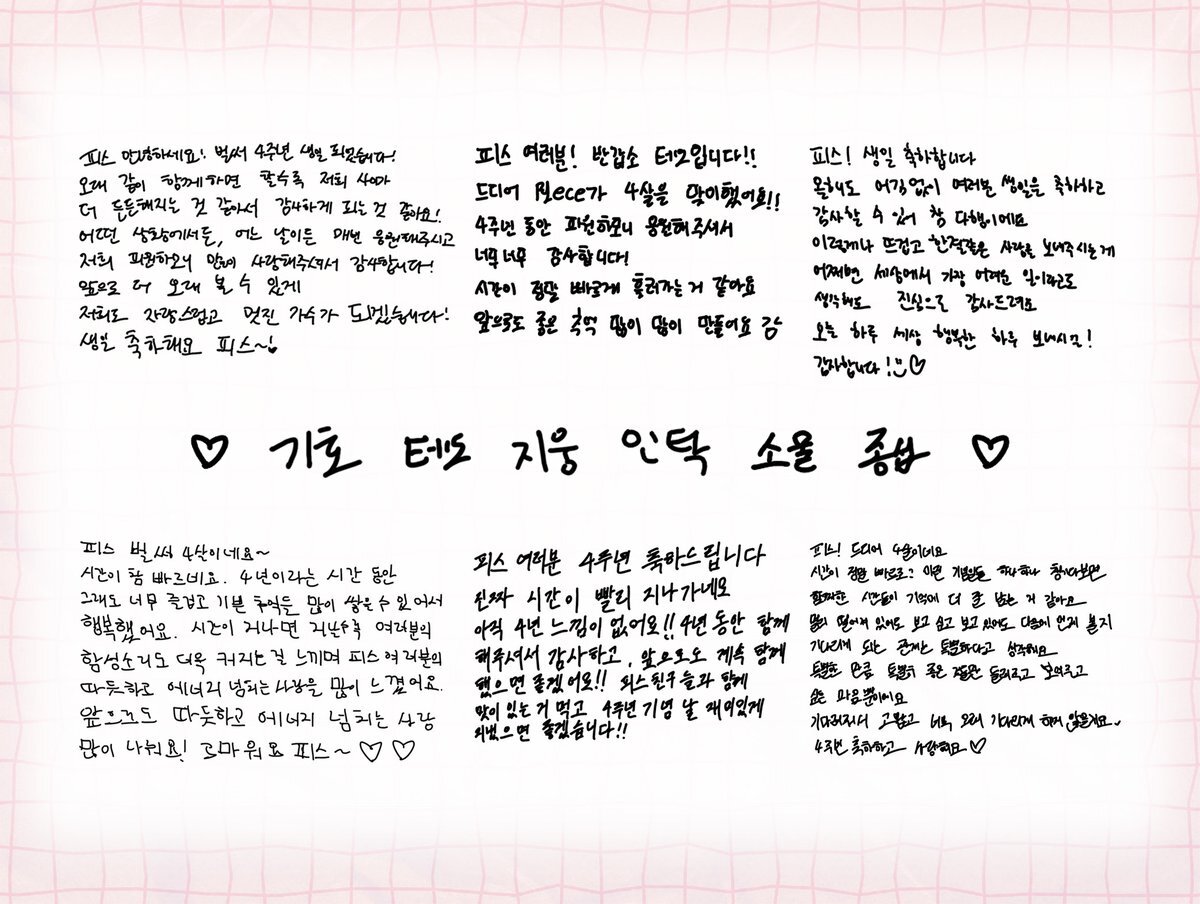 피스 안녕하세요! 벌써 4주년 생일 되었습니다!
오래 같이 함께하면 할수록 저희 사이가
더 든든해지는 것 같아서 감사하게 되는 것 같아요!
어떤 상황에서든, 어느 날이든 매번 응원해주시고
저희 피원하모니 많이 사랑해주셔서 감사합니다!
앞으로 더 오래 볼 수 있게
저희도 자랑스럽고 멋진 가수가 되겠습니다!
생일 축하해요 피스~
피스 여러분! 반갑소 테오입니다!!
드디어 P1ece가 4살을 맞이했어요!!
4주년 동안 피원하모니 응원해주셔서
너무너무 감사합니다!
시간이 정말 빠르게 흘러가는 거 같아요
앞으로도 좋은 추억 많이 많이 만들어요 감
피스! 생일 축하합니다
올해도 어김없이 여러분 생일을 축하하고
감사할 수 있어 참 다행이에요
이렇게나 뜨겁고 한결같은 사랑을 보내주시는게
어쩌면 세상에서 가장 어려운 일이라고도
생각해요 진심으로 감사드려요
오늘 하루 세상 행복한 하루 보내시길!
감자합니다!
♡ 기호 테오 지웅 인탁 소울 종섭 ♡
피스 벌써 4살이네요~
시간이 참 빠르네요. 4년이라는 시간 동안
그래도 너무 즐겁고 기쁜 추억들 많이 쌓을 수 있어서
행복했어요. 시간이 지나면 지날수록 여러분의
함성소리도 더욱 커지는걸 느끼며 피스여러분의
따듯하고 에너지 넘치는 사랑을 많이 느꼈어요.
앞으로도 따듯하고 에너지 넘치는 사랑
많이 나눠요! 고마워요 피스~ ♡ ♡
피스 여러분 4주년 축하드립니다
진짜 시간이 빨리 지나가네요
아직 4년 느낌이 없어요!! 4년 동안 함께
해주셔서 감사하고, 앞으로도 계속 함께
했으면 좋겠어요!! 피스친구들과 함께
맛이 있는 거 먹고 4주년 기념 날 재미있게
지냈으면 좋겠습니다!!
피스! 드디어 4살이네요
시간이 정말 빠르고 이런 기념일들 하나하나 챙기다보면
함께한 시간들이 기억에 더 잘 남는 거 같아요
많이 떨어져 있어도 보고 싶고 보고 있어도 다음에 언제 볼지
기다리게 되는 관계는 특별하다고 생각해요
특별한 만큼 특별히 좋은 것들만 들려주고 보여주고
싶은 마음뿐이에요
기다려줘서 고맙고 너무 오래 기다리게 하지 않을게요
4주년 축하하고 사랑해요 ♡